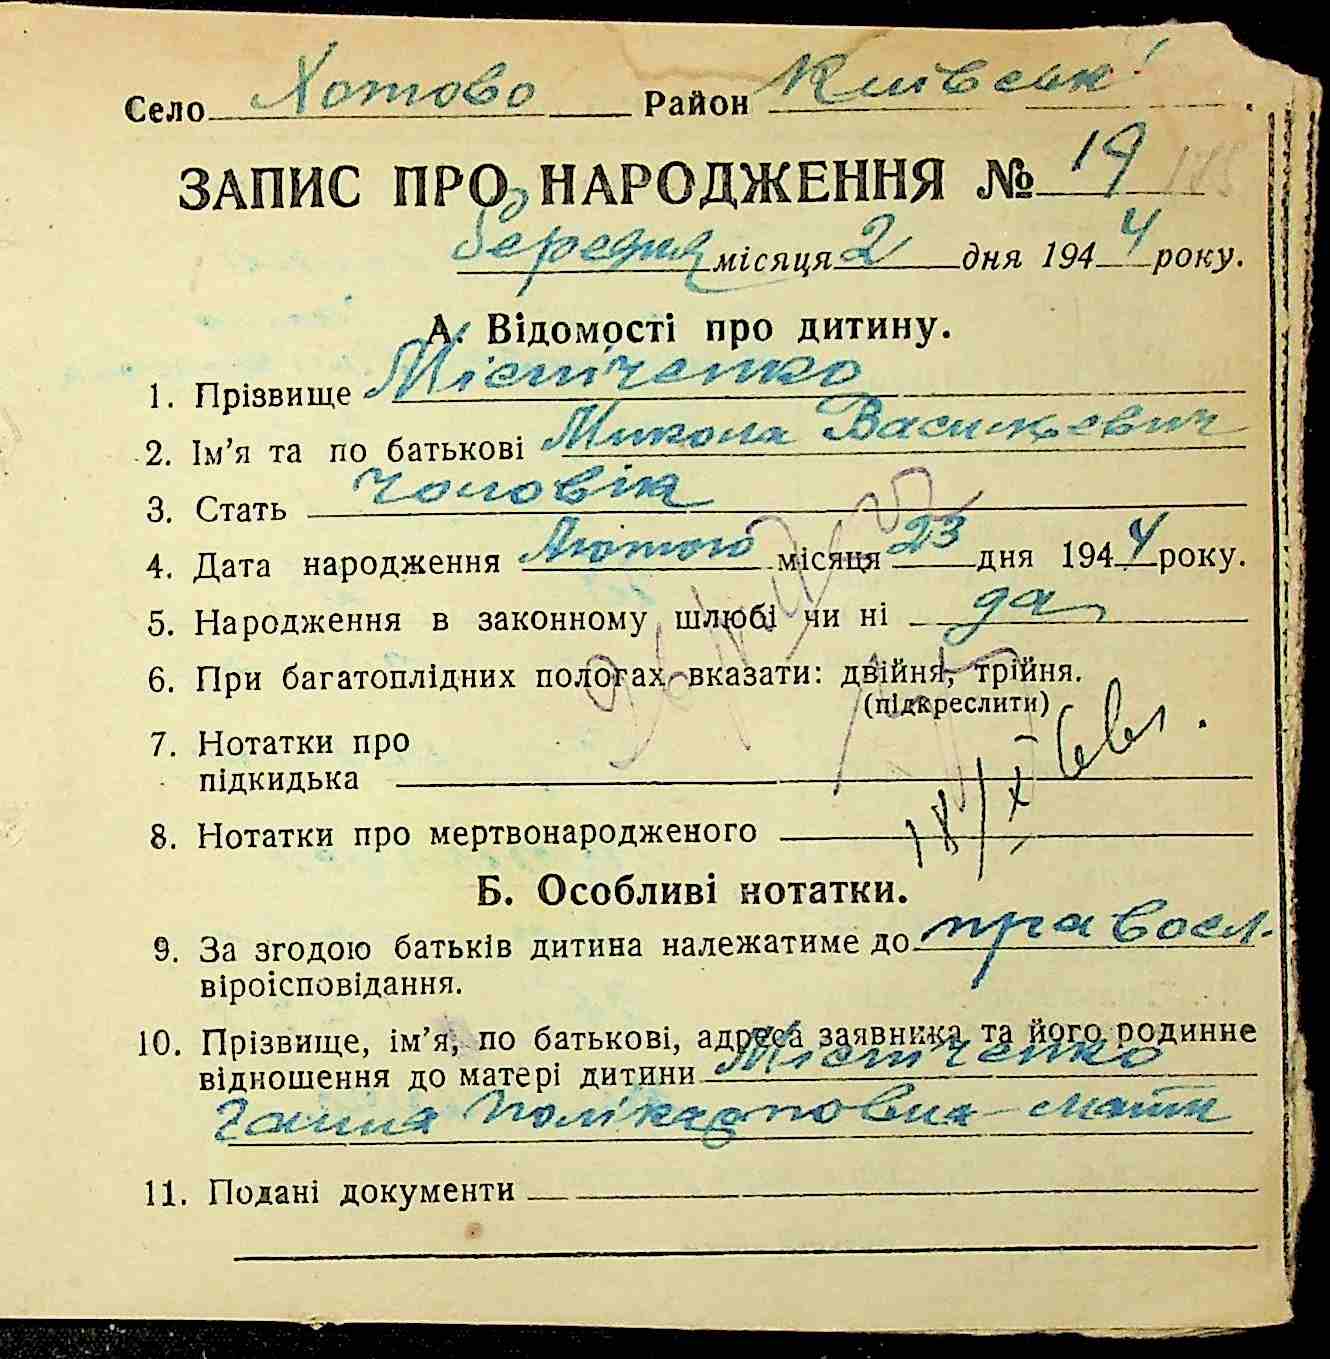 Село Хотово Район Київськ
ЗАПИС ПРО НАРОДЖЕННЯ № 19
березня місяця 2 дня 1944 року.
А. Відомості про дитину.
1. Прізвище Містіченко
2. Ім'я та по батькові Микола Васильевич
3. Стать чоловік
4. Дата народження Лютого місяця 23 дня 1944 року.
5. Народження в законному шлюбі чи ні да
6. При багатоплідних пологах вказати: двійня, трійня.
(підкреслити)
7. Нотатки про
підкидька
18/XI
8. Нотатки про мертвонародженого
Б. Особливі нотатки.
9. За згодою батьків дитина належатиме до правосл.
віроісповідання.
10. Прізвище, ім'я, по батькові, адреса заявника та його родинне
відношення до матері дитини Містіченко
Ганна Полікарповна мати
11. Подані документи